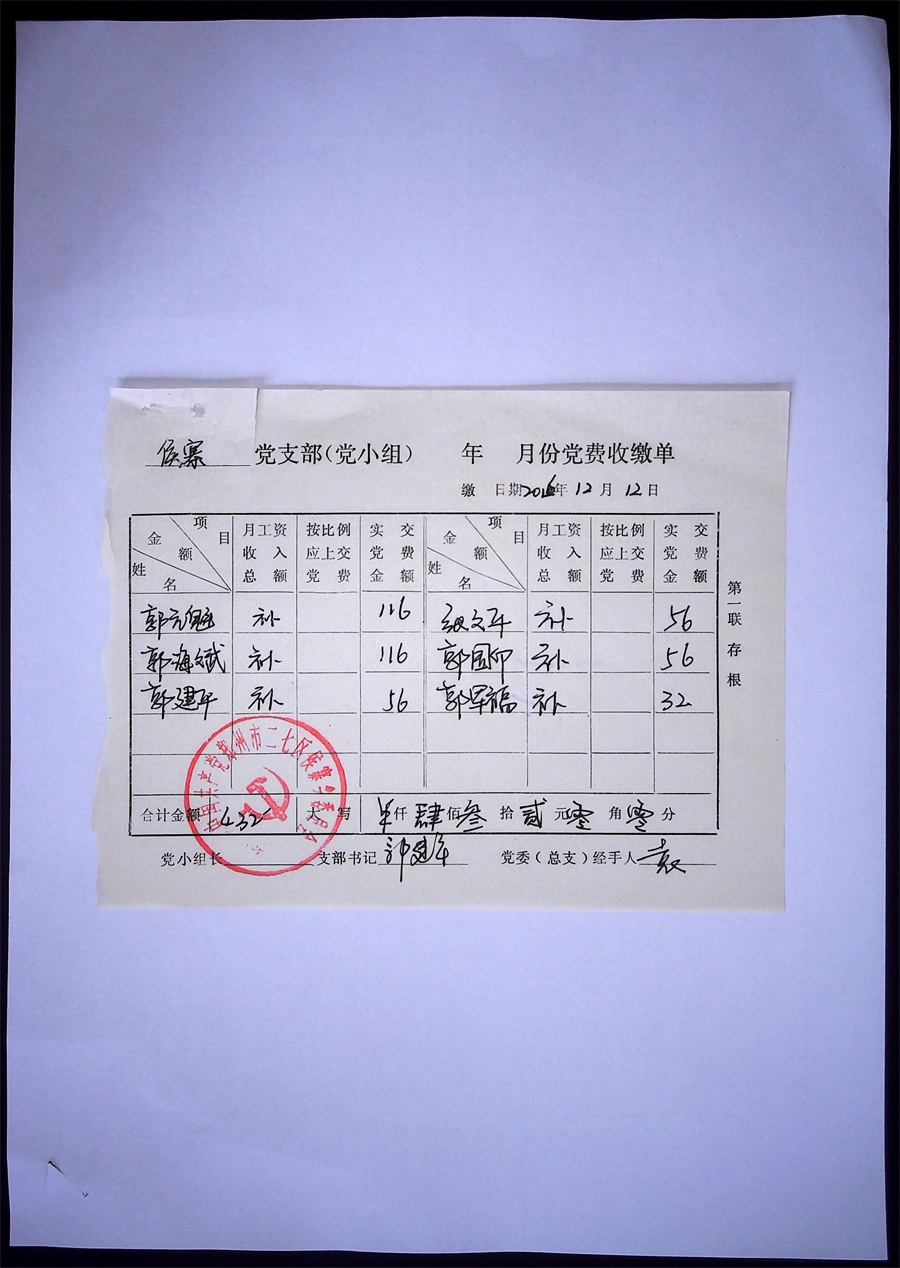 侯寨 党支部(党小组) 年 月份党费收缴单
缴 日期2016年12月12日
项目 金额 姓名 月工资收入总额 按比例应上交党费 实交党费金额 项目 金额 姓名 月工资收入总额 按比例应上交党费 实交党费金额
郭元 补 116 文平 补 56
郭海斌 补 116 郭国仰 补 56
郭建平 补 56 郭军福 补 32
合计金额 432 大写 仟肆佰叁拾贰元零角零分
党小组长 支部书记 郭建平 党委(总支)经手人 袁
第一联 存根
中国共产党郑州市二七区侯寨乡委员会